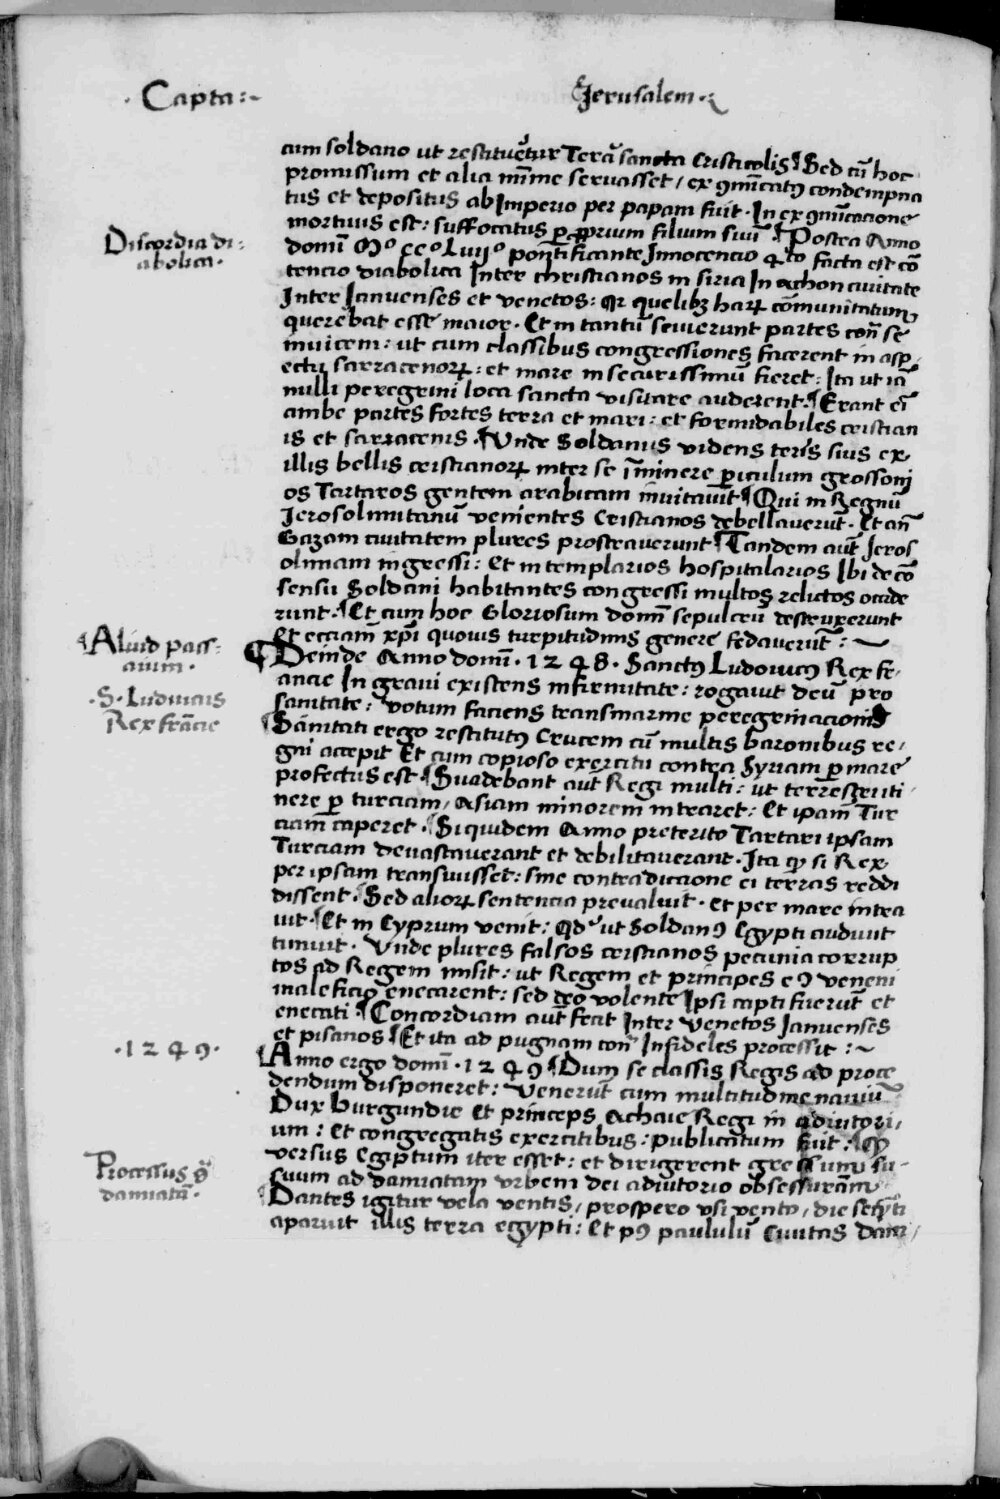 · Capta :~
Jerusalem ·~
cum soldano ut restituẽtur Terã sancta Cristicolis ¶ Sed cũ hoc
promissum et alia mĩme servasset / ex 9mũicatꝰ condempna
tus et depositus ab Imperio per papam fuit · In ex 9mũicacione
mortuus est : suffocatus ꝑ ꝓprium filium suũ ¶ Postea Anno
Discordia di:
abolica ·
domĩ Mº CCº Lviijº põntificante Innocencio qᵗᵒ facta est cõ
tencio diabolica Inter christianos in siria In achon civitate
Inter Januenses et venetos : qꝛ quelibꝫ haꝝ cõmunitatum
querebat esse maior · Et in tantũ sevierunt partes con̄ se
invicem : ut cum classibus congressiones facerent in asp
ectu sarracenoꝝ : et mare in securissimũ fieret : Ita ut iã
nulli peregrini loca sancta visitare auderent ¶ Erant eĩ
ambe partes fortes terra et mari : et formidabiles cristian
is et sarracenis · ¶ Unde Soldanus videns terris suis ex
illis bellis cristianoꝝ inter se ĩminere ꝑiculum grossoni
os Tartaros gentem arabicam invitavit ¶ Qui in Regnũ
Jerosolimitanũ venientes Cristianos debellaverũt · Et an̄
Gazam civitatem plures prostraverunt ¶ Tandem aũt Jeros
olimam ingressi : Et in templarios hospitalarios Ibi de cõ
sensu Soldani habitantes congressi multos relictos occide
runt · ¶ Et cum hoc Gloriosum domĩ sepulcrũ destruxerunt
Et ecciam xp̃i quovis turpitudinis genere fedaverũt : ~
¶ Aliud pass:
aium ·
· S · Ludvicus
Rex frãcie
¶ Deinde Anno domĩ · 1248 · Sanctꝰ Ludovicꝰ Rex fr
ancie In gravi existens infirmitate : rogavit deũ pro
sanitate : votum faciens transmarine peregrinacionis
¶ Sanitati ergo restitutꝰ Crucem cũ multis baronibus re
gni accepit Et cum copioso exercitu contra Syriam ꝑ mare
profectus est ¶ Suadebant aũt Regi multi : ut terrestri iti
nere ꝑ turciam / Asiam minorem intraret : Et ipam̃ Tur
ciam caperet · ¶ Siquidem Anno preterito Tartari ipsam
Turciam devastaverant et debilitaverant · Ita ꝙ si Rex
per ipsam transivisset : sine contradictione ei terras reddi
dissent · ¶ Sed alioꝝ sentencia prevaluit · et per mare intra
vit · ¶ Et in Cyprum venit : Qd ut Soldanꝰ Egypti audivit
timuit · Unde plures falsos cristianos pecunia corrup
tos ad Regem misit : ut Regem et principes eꝰ veneni
maleficio enecarent : sed deo volente Ipsi capti fuerũt et
enecati · ¶ Concordiam aũt fecit Inter Venetos Januenses
et pisanos ¶ Et ita ad pugnam con̄ Infideles processit : ~
· 1249 ·
¶ Anno ergo domĩ · 1249 ¶ Dum se classis Regis ad proce
dendum disponeret : Venerũt cum multitudine naviũ
Dux burgundie Et princeps Achaie Regi in adiutori
um : Et congregatis exercitibus : publicatum fuit : ꝙ
versus Egiptum iter esset : et dirigerent gressum su
Processus ꝯ̃
damiatã ·
suum ad damiatam urbem dei adiutorio obsessuram̃
¶ Dantes igitur vela ventis / prospero usi vento / die
aparuit illis terra egypti : Et pꝰ paululũ Civitas dami